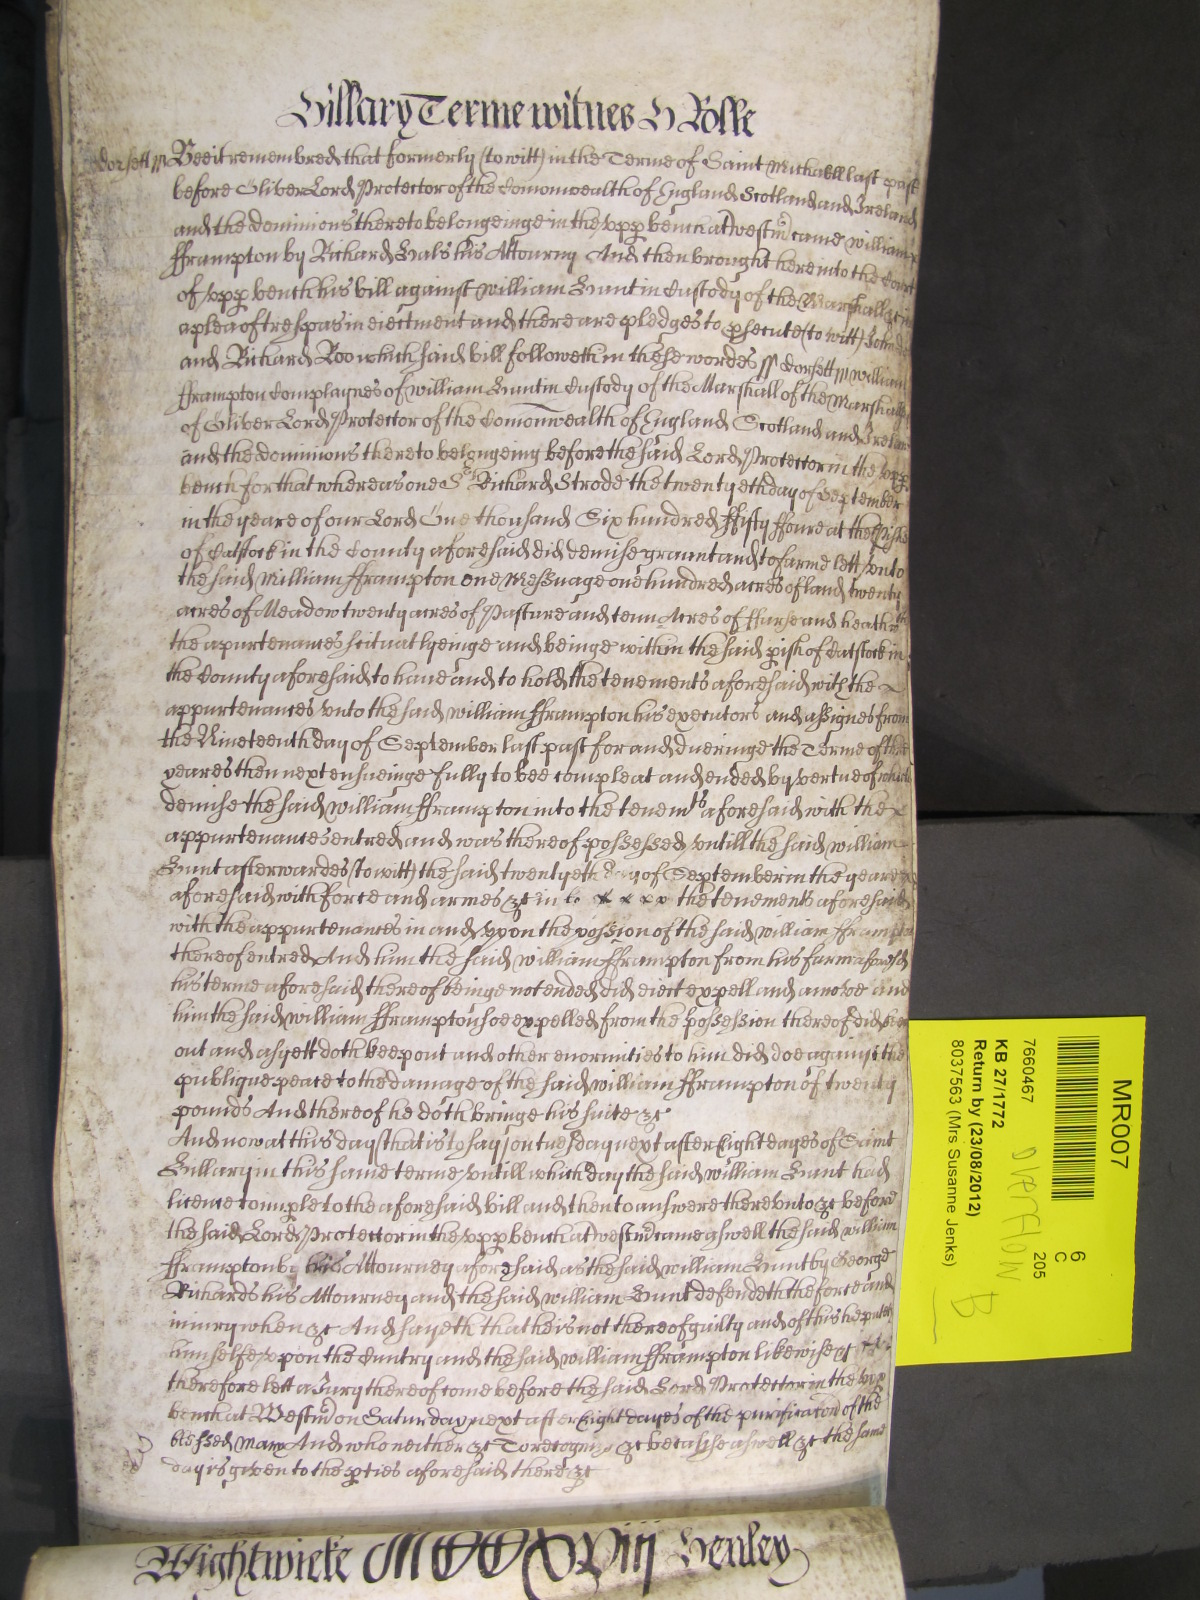 Hillary Terme witnes H Rolle
Dorsett ss Bee it remembred that formerly (to witt) in the Terme of Saint Michaell last past
before Oliver Lord Protector of the Comonwealth of England Scotland and Ireland
and the dominions thereto belongeinge in the vpp bench at westmr came william
fframpton by Richard Hals his Attourny And then brought here into the Court
of vpp bench his bill against william Hunt in Custody of the Marshall &c
a plea of trespas in eiectment and there are pledges to psecute (to witt) John Do
and Richard Roo which said bill followeth in these wordes ss Dorsett ss william
fframpton Complaynes of william Hunt in Custody of the Marshall of the Marshalsy
of Oliver Lord Protector of the Comonwealth of England Scotland and Ireland
and the dominions thereto belongeing before the said Lord Protector in the vpp
bench for that whereas one Sr Richard Strode the twentyeth day of September
in the yeare of our Lord One thousand Six hundred ffifty ffoure at the pish
of Catstock in the County aforesaid did demise graunt and to farme lett vnto
the said william fframpton one Messuage one hundred acres of land twenty
acres of Meadow twenty acres of Pasture and tenn Acres of ffurse and heath wth
the apurtenances scituat lyeinge and beinge within the said pish of Catstock in
the County aforesaid to haue and to hold the tenements aforesaid with the
appurtenances vnto the said william fframpton his executors and assignes from
the Nineteenth day of September last past for and dueringe the Terme of
yeares then next ensueinge fully to bee compleat and ended by vertue of which
demise the said william fframpton into the tenemts aforesaid with the
appurtenances entred and was thereof possessed vntill the said william
Hunt afterwardes (to witt) the said twentyeth day of September in the yeare
aforesaid with force and armes &c in the tenements aforesaid
with the appurtenances in and vpon the possion of the said william fframpton
thereof entred And him the said william fframpton from his farme aforesd
his terme aforesaid thereof beinge not ended did eiect expell and amove and
him the said william fframpton soe expelled from the possession thereof did keep
out and as yett doth keep out and other enormities to him did doe against the
publique peace to the damage of the said william fframpton of twenty
pounds And thereof he doth bringe his suite &c
And now at this day (that is to say) on tuesday next after Eight dayes of Saint
Hillary in this same terme vntill which day the said william Hunt had
licence to imple to the aforesaid bill and then to answere therevnto &c before
the said Lord Protector in the vpp bench at westmr came aswell the said william
fframpton by his Attourney aforesaid as the said william Hunt by George
Richards his Attourney and the said william Hunt defendeth the force and
iniury when &c And sayeth that he is not thereof guilty and of this he putteth
himselfe vpon the Cuntry and the said william fframpton likewise &c
therefore lett a Jury thereof come before the said Lord Protector in the vpp
bench at Westmr on Saturday next after Eight dayes of the purificacon of the
blessed Mary And who neither &c To recognize &c because aswell &c the same
day is given to the pties aforesaid there &c
Wightwicke MDCCXVIII Henley
MR007
6
C
205
7660467
overflow
KB 27/1772
Return by (23/08/2012)
8037563 (Mrs Susanne Jenks)
B